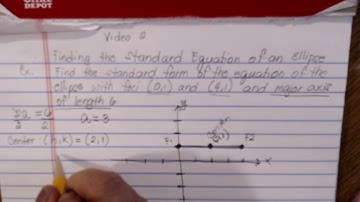 Office DEPOT
Video 2
Finding the Standard Equation of an Ellipse
Ex. Find the standard form of the equation of the
ellipse with foci (0,1) and (4,1) and major axis
of length 6
2a = 6
2 2
a = 3
Center (h,k) = (2,1)
y
Center
(2,1)
F1
F2
x